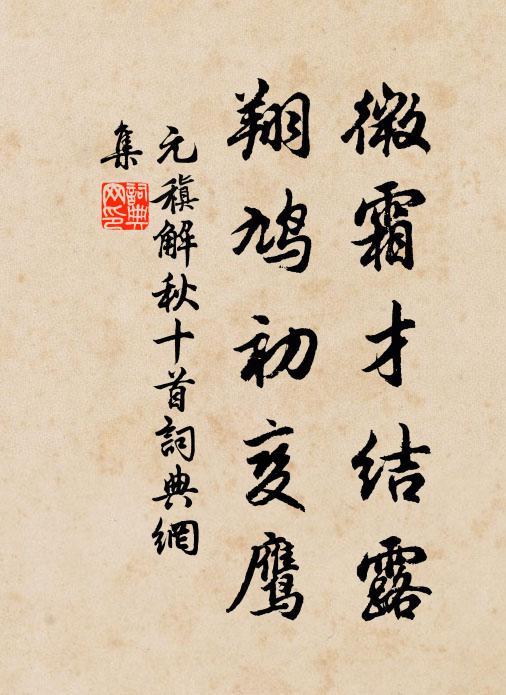 微霜才结露
翔鸠初变鹰
元稹解秋十首詞典網
集
詞典網印